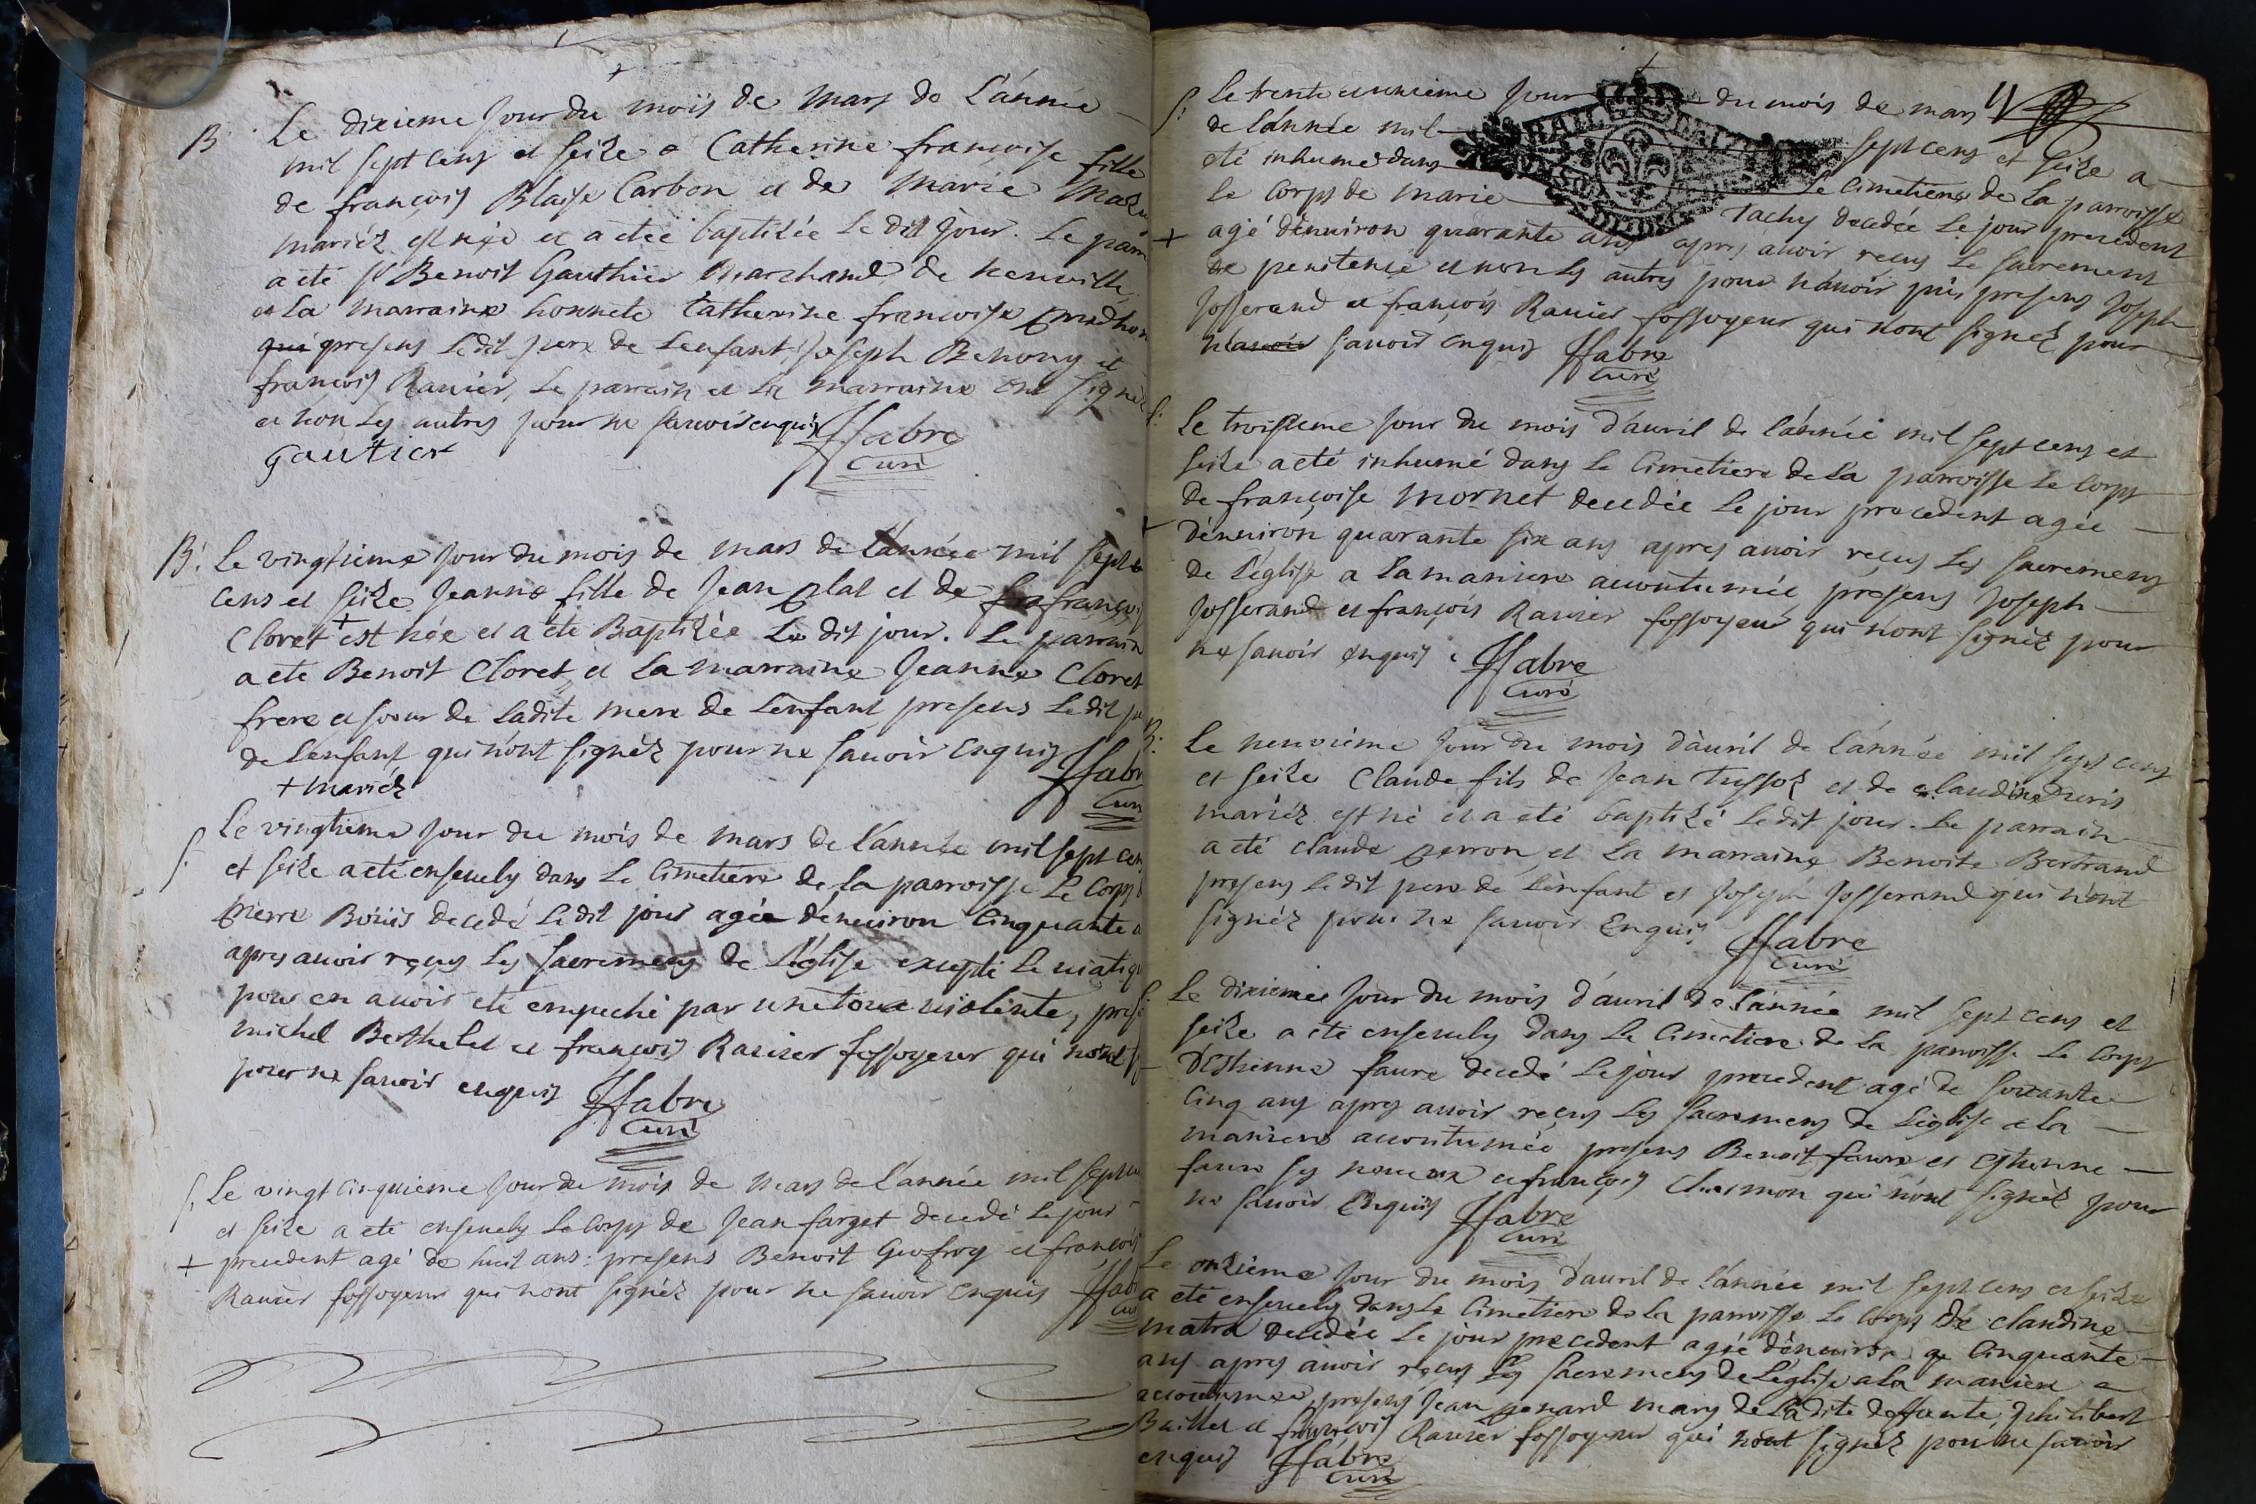 B Le dixieme Jour du mois de mars de L'année
mil sept cens et seize Catherine françoise fille
de françois Blaise Carbon et de Marie
mariéz est née et a eté baptisée Le dit Jour. Le parr
a eté sr Benoit Gauthier Marchand de
et La marraine honnete Catherine francoise
presens Le dit pere de L'enfant, Joseph et
françois Rauier, Le parrain et La marraine ont signé
et non Les autres pour ne sauoir enquis ffabre
Gautier curé
B. Le vingtieme Jour du mois de mars de L'année mil sept
cens et seize Jeanne fille de Jean plat et de françoi
Cloret + est née et a eté Baptisée Le dit jour. Le parrain
a eté Benoit Cloret, et La marraine Jeanne Cloret
frere et soeur de Ladite mere de L'enfant presens Le dit pe
de L'enfant, qui n'ont signéz pour ne sauoir enquis ffabr
+ mariéz Cur
S. Le vingtieme Jour du mois de mars de L'année mil sept cen
et seize a eté enseuely dans Le Cimetiere de la parroisse Le Corps d
pierre Boüis decedé Le dit jour agée d'enuiron Cinquante a
apres auoir reçus Les Sacremens de L'église excepté Le uiatiq
pour en auoir eté empeché par une toux uiolente, pres
michel Berthelet et françois Rauier fossoyeur qui n'ont
pour ne sauoir enquis ffabre
Curé
S. Le vingt cinquieme Jour du mois de Mars de L'année mil sept ce
et seize a eté enseuely Le Corps de Jean farget decedé Le jour
+ precedent agé de huit ans: presens Benoit Geofroy et françois
Rauier fossoyeur qui n'ont signéz pour ne sauoir enquis ffab
cu
S. Le trente unieme Jour du mois de mars
de L'année mil sept cens et seize a
eté inhumé dans Le Cimetiere de La parroisse
Le Corps de marie Tachy decedée Le jour precedent
+ agé d'enuiron quarante ans apres auoir reçus Le sacrement
de penitence et non Les autres pour n'auoir pû, presens Joseph
Josserand et françois Rauier fossoyeur qui n'ont signéz pour
sauoir enquis ffabre
curé
S. Le troisieme Jour du mois d'auril de L'année mil sept cens et
seize a eté inhumé dans Le Cimetiere de La parroisse Le Corps
de françoise mornet decedée Le jour precedent agée
d'enuiron quarante six ans apres auoir reçus Les sacremens
de L'église a La maniere accoutumée, présens Joseph
Josserand et françois Rauier fossoyeur qui n'ont signéz pour
ne sauoir enquis. ffabre
Curé
B. Le neuuieme Jour du mois d'auril de L'année mil sept cens
et seize Claude fils de Jean Tussot et de Claudine Duris
mariéz est né et a eté baptisé Le dit jour. Le parrain
a eté Claude perron, et La marraine Benoite Bertrand
presens Le dit pere de L'enfant et Joseph Josserand qui n'ont
signéz pour ne sauoir Enquis ffabre
Curé
S. Le dixieme Jour du mois d'auril de L'année mil sept cens et
seize a eté enseuely dans Le Cimetiere de La parroisse Le Corps
D'Esthienne faure decedé Le jour precedent agé de soixante
Cinq ans apres auoir reçus Les sacremens de L'église a La
maniere accoutumée presens Benoit faure et Esthienne
faure ses neueux et françois qui n'ont signéz pour
ne sauoir Enquis ffabre
Curé
Le onzieme Jour du mois d'auril de L'année mil sept cens et seize
a eté enseuely dans Le Cimetiere de La parroisse Le Corps de claudine
matra decedée Le jour precedent agée d'enuiron Cinquante
ans apres auoir reçus Les sacremens de L'église a La maniere
accoutumée, presens Jean penard mary de La dite defunte, philibert
Baillet et françois Rauier fossoyeur qui n'ont signéz pour ne sauoir
enquis ffabre
Curé